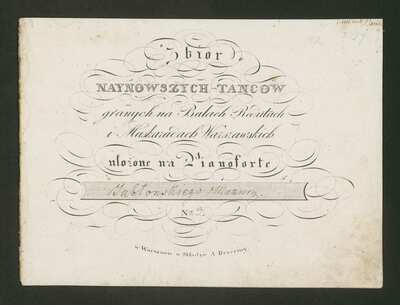 Zbior
NAYNOWSZYCH TANCOW
granych na Balach Redutach
i Maskaradach Warszawskich
ułożone na Pianoforte
Jabłonskiego
No 2.
w Warszawie w Składzie A. Brzeziny.